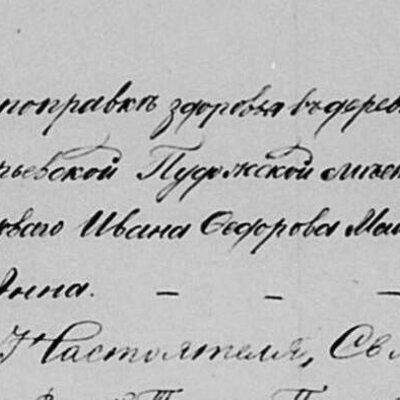 поправкѣ здоровья въ дерев
рьевской Пудожской
ваго Ивана Ѳедорова Ма
Анна. — — —
Настоятеля, Св